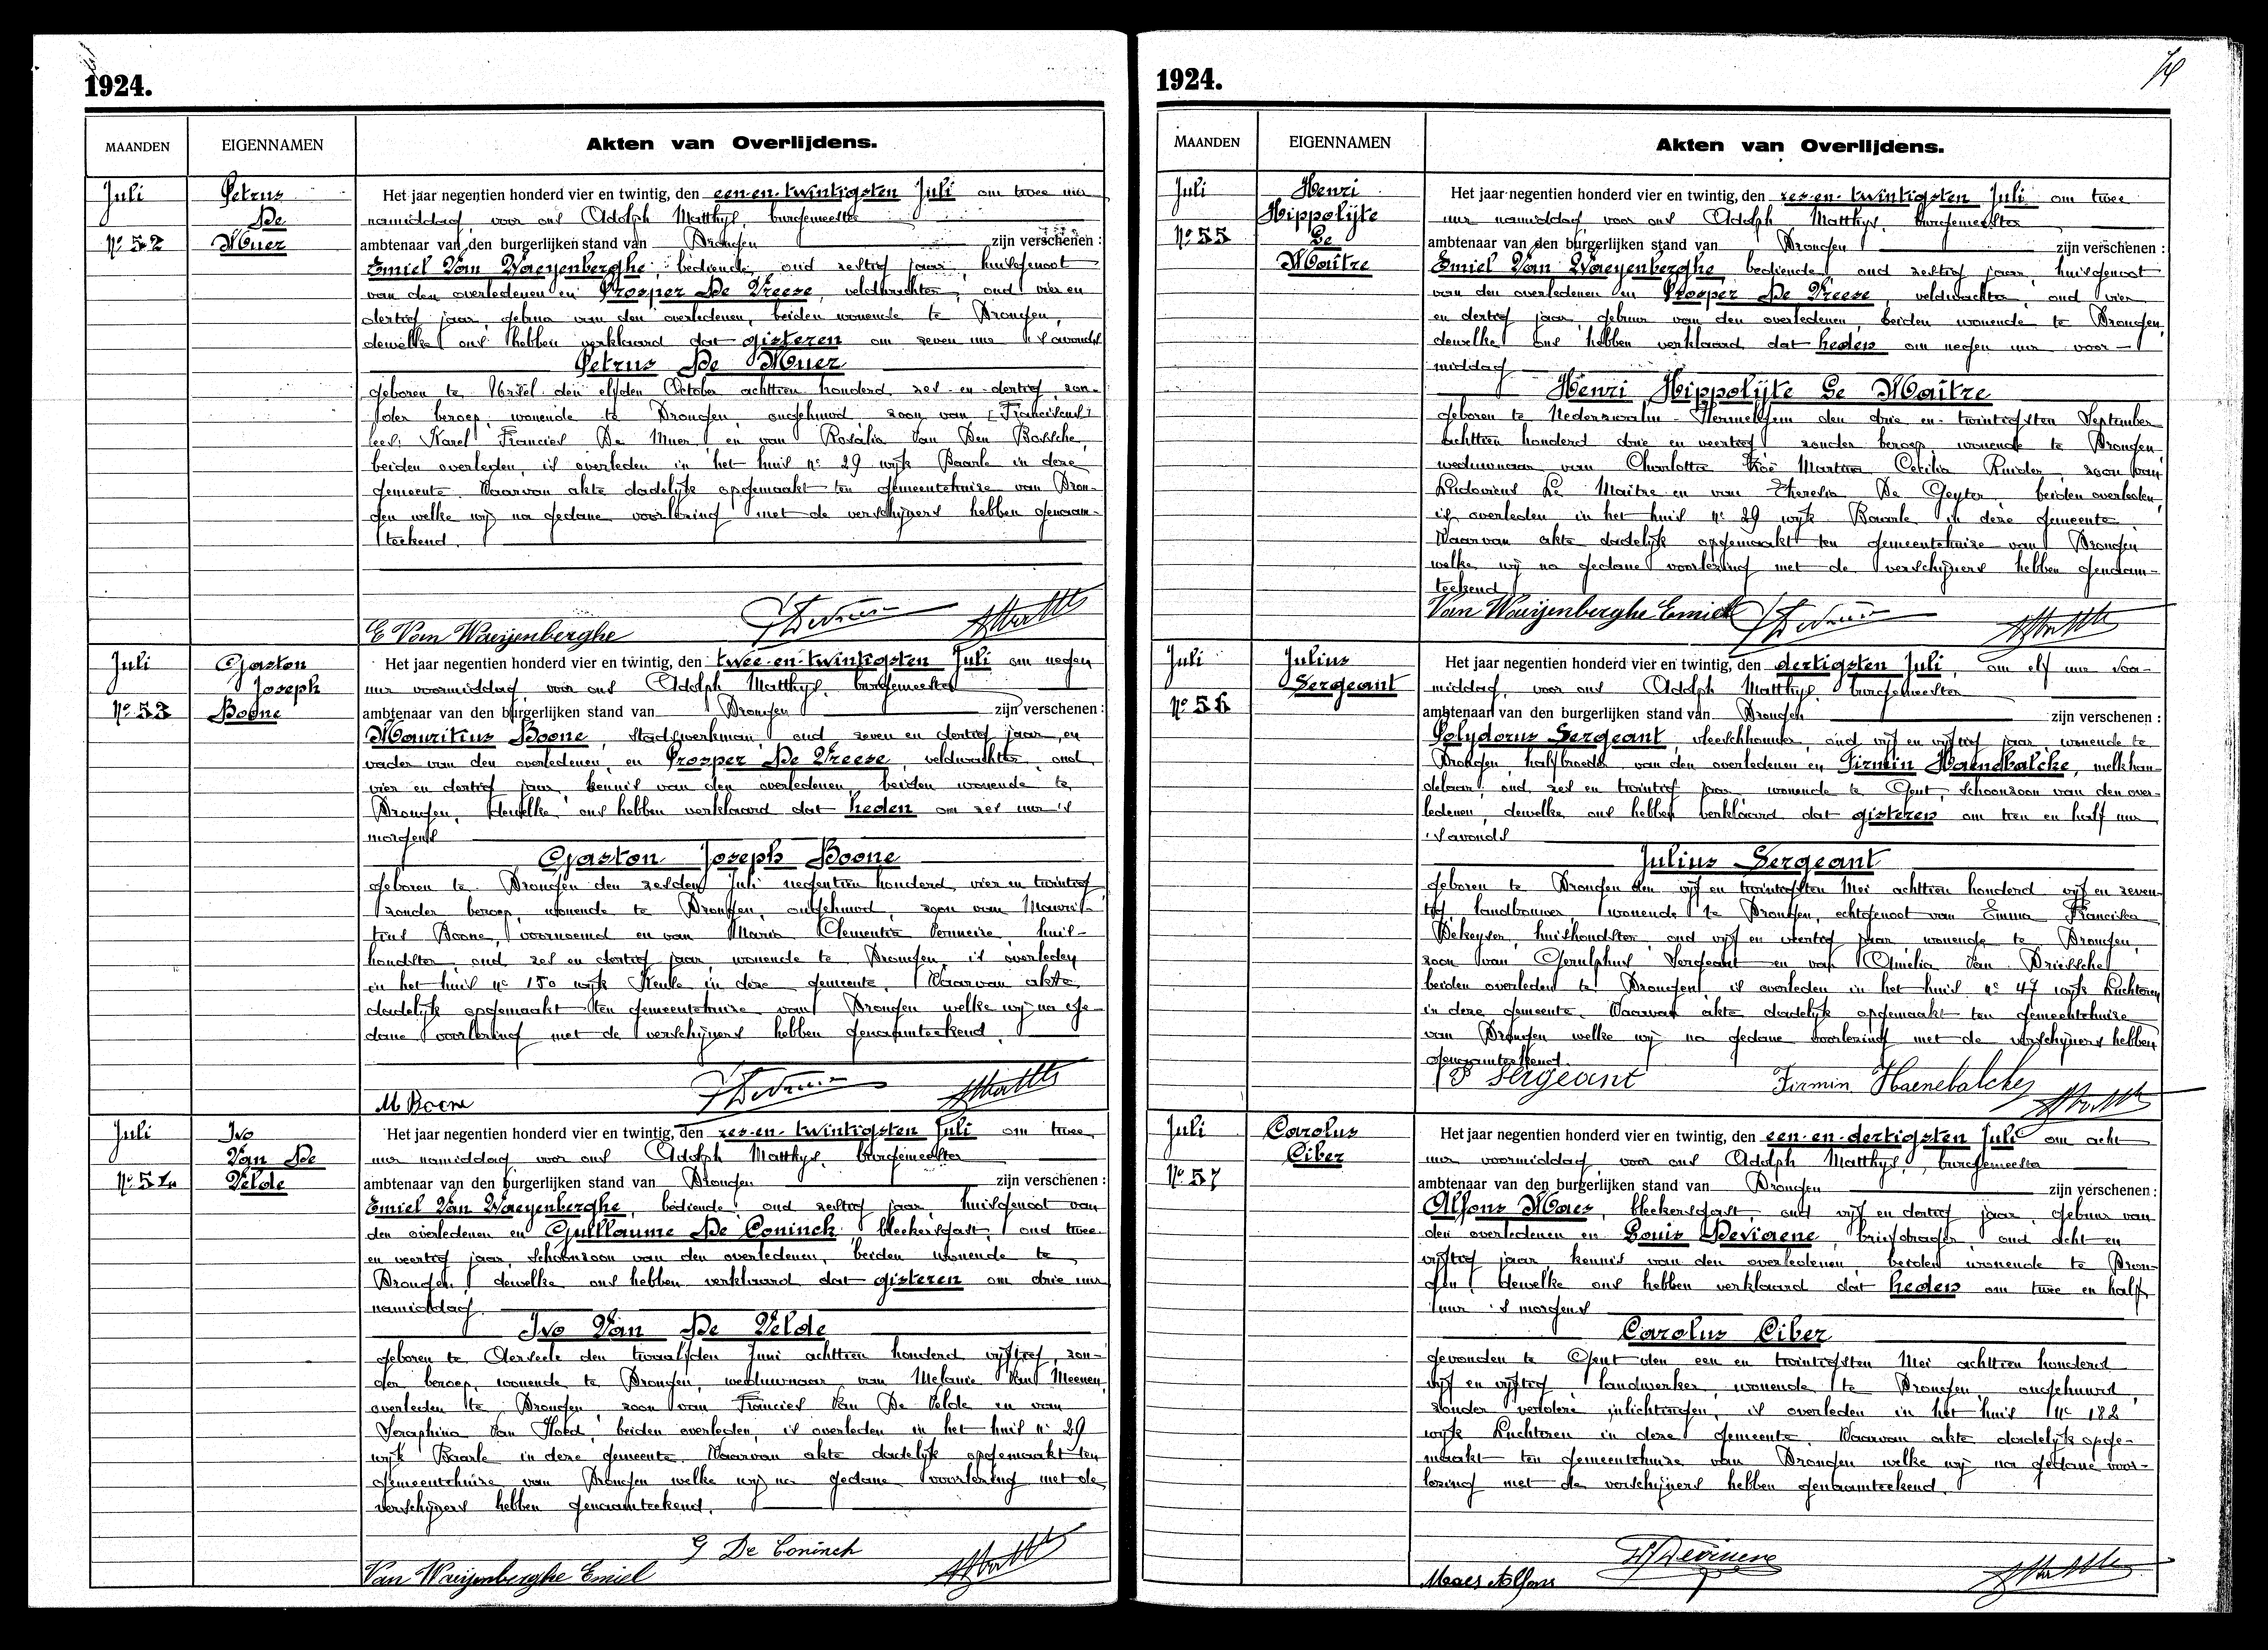 1924.
MAANDEN EIGENNAMEN Akten van Overlijdens.
Juli
No 52
Petrus
De
Muer
Het jaar negentien honderd vier en twintig, den een-en-twintigsten Juli om twee uur
namiddag voor ons Adolph Matthys, burgemeester
ambtenaar van den burgerlijken stand van Drongen zijn verschenen :
Emiel Van Waeyenberghe, bediende, oud zestig jaar, huisgenoot
van den overledenen en Prosper De Vreese, veldwachter, oud vier en
dertig jaar, gebuur van den overledenen, beiden wonende te Drongen,
dewelke ons hebben verklaard dat gisteren om zeven uur 's avonds
Petrus De Muer
geboren te Ursel den elfden October achttien honderd zes-en-dertig, zon-
der beroep, wonende te Drongen, ongehuwd, zoon van [Franciscus]
lees: Karel Francies De Muer en van Rosalia Van Den Bossche,
beiden overleden, is overleden in het huis no 29 wijk Baarle in deze
gemeente. Waarvan akte dadelijk opgemaakt ten gemeentehuize van Dron-
gen welke wij na gedane voorlezing met de verschijners hebben genaam-
teekend.
E Van Waeijenberghe
Juli
No 53
Gaston
Joseph
Boone
Het jaar negentien honderd vier en twintig, den twee-en-twintigsten Juli om negen
uur voormiddag, voor ons Adolph Matthys, burgemeester
ambtenaar van den burgerlijken stand van Drongen zijn verschenen :
Mauritius Boone, stadswerkman, oud zeven en dertig jaar, en
vader van den overledenen, en Prosper De Vreese, veldwachter, oud
vier en dertig jaar, kennis van den overledenen beiden wonende te
Drongen, dewelke ons hebben verklaard dat heden om zes uur 's
morgens
Gaston Joseph Boone
geboren te Drongen den zesden Juli negentien honderd vier en twintig
zonder beroep, wonende te Drongen, ongehuwd, zoon van Mauri-
tius Boone, voornoemd en van Maria Clementia Vermeire, huis-
houdster, oud zes en dertig jaar, wonende te Drongen, is overleden
in het huis no 150 wijk Keuze in deze gemeente. Waarvan akte
dadelijk opgemaakt ten gemeentehuize van Drongen welke wij na ge-
dane voorlezing met de verschijners hebben genaamteekend.
M Boone
Juli
No 54
Ivo
Van De
Velde
Het jaar negentien honderd vier en twintig, den zes-en-twintigsten Juli om twee
uur namiddag voor ons Adolph Matthys, burgemeester
ambtenaar van den burgerlijken stand van Drongen zijn verschenen :
Emiel Van Waeyenberghe, bediende, oud zestig jaar, huisgenoot van
den overledenen en Guillaume De Coninck, bleekersgast, oud twee
en veertig jaar, schoonzoon van den overledenen, beiden wonende te
Drongen, dewelke ons hebben verklaard dat gisteren om drie uur
namiddag
Ivo Van De Velde
geboren te Aerseele den twaalfden Juni achttien honderd vijftig, zon-
der beroep, wonende te Drongen, weduwnaar van Melanie Van Meenen,
overleden te Drongen, zoon van Francies Van De Velde en van
Seraphina Van Hoed, beiden overleden, is overleden in het huis no 29
wijk Baarle in deze gemeente. Waarvan akte dadelijk opgemaakt ten
gemeentehuize van Drongen welke wij na gedane voorlezing met de
verschijners hebben genaamteekend.
G De Coninck
Van Waeijenberghe Emiel
1924.
MAANDEN EIGENNAMEN Akten van Overlijdens.
Juli
No 55
Henri
Hippolijte
Le
Maître
Het jaar negentien honderd vier en twintig, den zes-en-twintigsten Juli om twee
uur namiddag voor ons Adolph Matthys, burgemeester
ambtenaar van den burgerlijken stand van Drongen zijn verschenen :
Emiel Van Waeyenberghe, bediende, oud zestig jaar, huisgenoot
van den overledenen en Prosper De Vreese, veldwachter, oud vier
en dertig jaar gebuur van den overledenen, beiden wonende te Drongen,
dewelke ons hebben verklaard dat heden om negen uur voor-
middag
Henri Hippolijte Le Maître
geboren te Nederzwalm-Hermelgem den drie en twintigsten September
achttien honderd drie en veertig zonder beroep, wonende te Drongen
weduwnaar van Charlotta Zoë Martina Cecilia Ruider, zoon van
Ludovicus Le Maître en van Theresia De Geyter, beiden overleden,
is overleden in het huis no 29 wijk Baarle in deze gemeente.
Waarvan akte dadelijk opgemaakt ten gemeentehuize van Drongen
welke wij na gedane voorlezing met de verschijners hebben genaam-
teekend
Van Waeijenberghe Emiel
Juli
No 56
Julius
Sergeant
Het jaar negentien honderd vier en twintig, den dertigsten Juli, om elf uur voor-
middag, voor ons Adolph Matthys, burgemeester
ambtenaar van den burgerlijken stand van Drongen zijn verschenen :
Polydorus Sergeant, vleeschhouwer, oud vijf en vijftig jaar, wonende te
Drongen, halfbroeder van den overledenen en Firmin Haenebalcke, melkhan-
delaar, oud zes en twintig jaar, wonende te Gent, schoonzoon van den over-
ledenen, dewelke ons hebben verklaard dat gisteren om tien en half uur
's avonds
Julius Sergeant
geboren te Drongen den vijf en twintigsten Mei achttien honderd vijf en zeven-
tig, landbouwer, wonende te Drongen, echtgenoot van Emma Francisca
Dekeyser, huishoudster, oud vijf en veertig jaar, wonende te Drongen,
zoon van Gerulphus Sergeant en van Amelia Van Driessche
beiden overleden te Drongen, is overleden in het huis no 47 wijk Luchteren
in deze gemeente. Waarvan akte dadelijk opgemaakt ten gemeentehuize
van Drongen welke wij na gedane voorlezing met de verschijners hebben
genaamteekend.
P Sergeant Firmin Haenebalcke
Juli
No 57
Carolus
Ciber
Het jaar negentien honderd vier en twintig, den een-en-dertigsten Juli om acht
uur voormiddag, voor ons Adolph Matthys, burgemeester
ambtenaar van den burgerlijken stand van Drongen zijn verschenen :
Alfons Maes, bleekersgast, oud vijf en dertig jaar, gebuur van
den overledenen en Louis Devianene, briefdrager, oud acht en
vijftig jaar kennis van den overledenen beiden wonende te Dron-
gen, dewelke ons hebben verklaard dat heden om twee en half
uur 's morgens
Carolus Ciber
gevonden te Gent den een en twintigsten Mei achttien honderd
vijf en vijftig, landwerker, wonende te Drongen, ongehuwd,
zonder verdere inlichtingen, is overleden in het huis no 182
wijk Luchteren in deze gemeente. Waarvan akte dadelijk opge-
maakt ten gemeentehuize van Drongen welke wij na gedane voor-
lezing met de verschijners hebben genaamteekend.
Maes Alfons